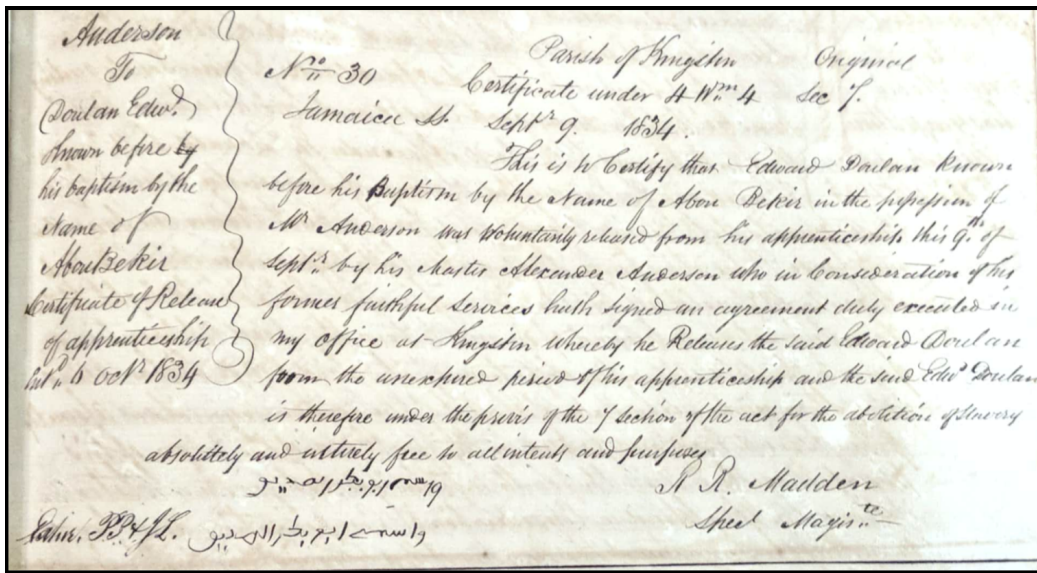 Anderson
To
Doulan Edwd.
known before by
his baptism by the
Name of
Abou Bekir
Certificate of Release
of apprenticeship
Entd. 6 Octr 1834
Parish of Kingston Original
No. 30 Certificate under 4 Wm 4 Sec 7.
Jamaica Ss Septr 9. 1834.
This is to Certify that Edward Doulan known
before his Baptism by the Name of Abou Bekir in the possession of
Mr Anderson was Voluntarily released from his apprenticeship this 9th of
Septr. by his Master Alexander Anderson who in Consideration of his
former faithful Services hath signed an agreement duly executed in
my Office at Kingston whereby he Releases the said Edward Doulan
from the unexpired period of his apprenticeship and the said Edwd Doulan
is therefore under the provis of the 7 Section of the act for the abolition of Slavery
absolutely and entirely free to all intents and purposes
R R. Madden
Specl Magiste
واسمه ابو بكر الصديق
واسمه ابو بكر الصديق